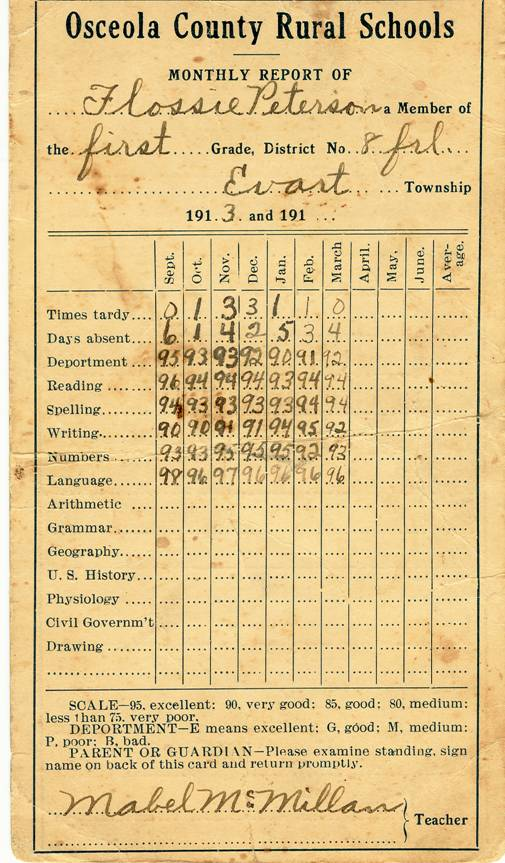 Osceola County Rural Schools
MONTHLY REPORT OF
Flossie Peterson a Member of
the first Grade, District No. 8 frl.
Evart Township
191 3 and 191
Sept. Oct. Nov. Dec. Jan. Feb. March April. May. June. Aver-age.
Times tardy 0 1 3 3 1 1 0
Days absent 6 1 4 2 5 3 4
Deportment 95 93 93 92 90 91 92
Reading 96 94 94 94 93 94 94
Spelling 94 93 93 93 93 94 94
Writing 90 90 91 91 94 95 92
Numbers 93 93 95 95 95 92 93
Language 98 96 97 96 96 96 96
Arithmetic
Grammar
Geography
U. S. History
Physiology
Civil Governm't
Drawing
SCALE—95, excellent: 90, very good: 85, good; 80, medium:
less than 75, very poor.
DEPORTMENT—E means excellent: G, good; M, medium:
P, poor; B, bad.
PARENT OR GUARDIAN—Please examine standing, sign
name on back of this card and return promptly.
Mabel McMillan
Teacher